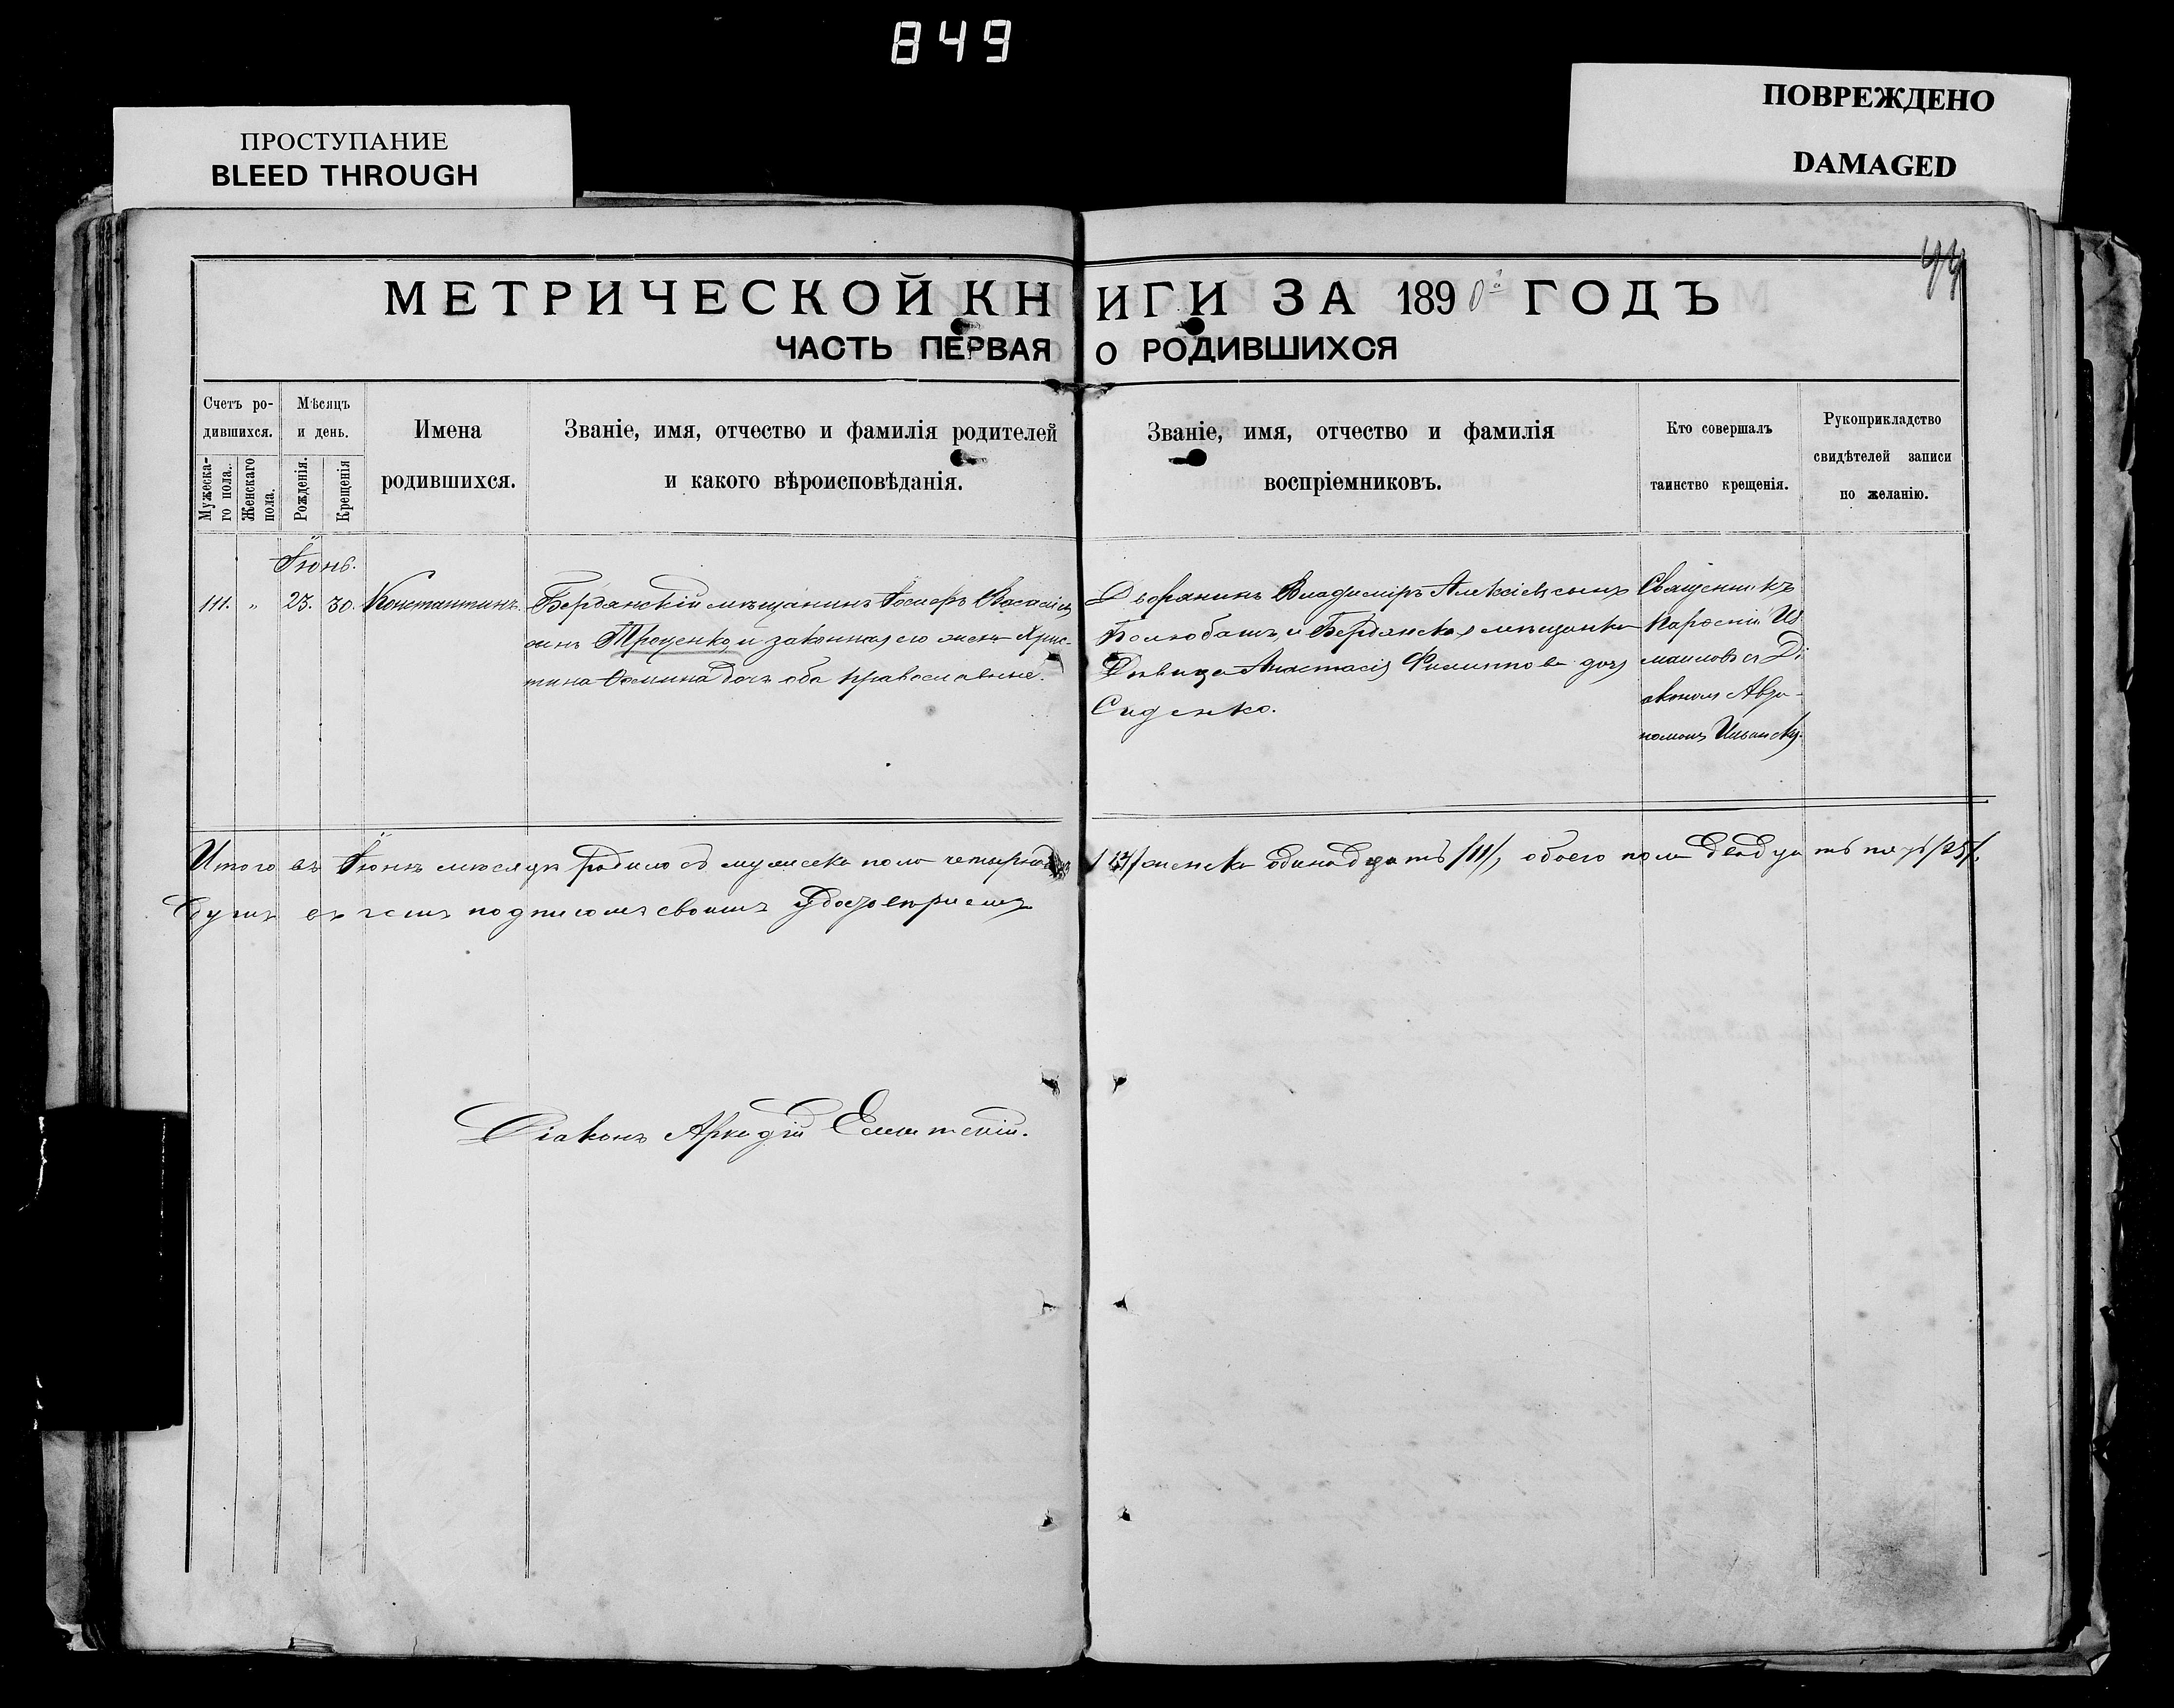 849
ПРОСТУПАНИЕ
BLEED THROUGH
ПОВРЕЖДЕНО
DAMAGED
МЕТРИЧЕСКОЙ КНИГИ ЗА 1890 ГОДЪ
ЧАСТЬ ПЕРВАЯ О РОДИВШИХСЯ
Счетъ ро-
дившихся.
Мужеска-
го пола.
Женскаго
пола.
Мѣсяцъ
и день.
Рожденія.
Крещенія
Имена
родившихся.
Званіе, имя, отчество и фамилія родителей
и какого вѣроисповѣданія.
Званіе, имя, отчество и фамилія
воспріемниковъ.
Кто совершалъ
таинство крещенія.
Рукоприкладство
свидѣтелей записи
по желанію.
Іюнь.
111. „ 23. 30. Константинъ.
Бердянскій мѣщанинъ Іосифъ
Троценко, и законная его жена Хрис-
тина дочь оба православные.
Дворянинъ Владиміръ Алексіевъ сынъ
и Бердянская мѣщанка
Дѣвица Анастасія Филиппова дочь
Сиденко.
Священникъ
Из
маиловъ съ Ді
акономъ
Итого въ Іюнѣ мѣсяцѣ родилось мужеска пола /14/ женска одинадцать /11/, обоего пола двадцать пять /25/.
въ чемъ подписомъ своимъ
Діаконъ Аркадій